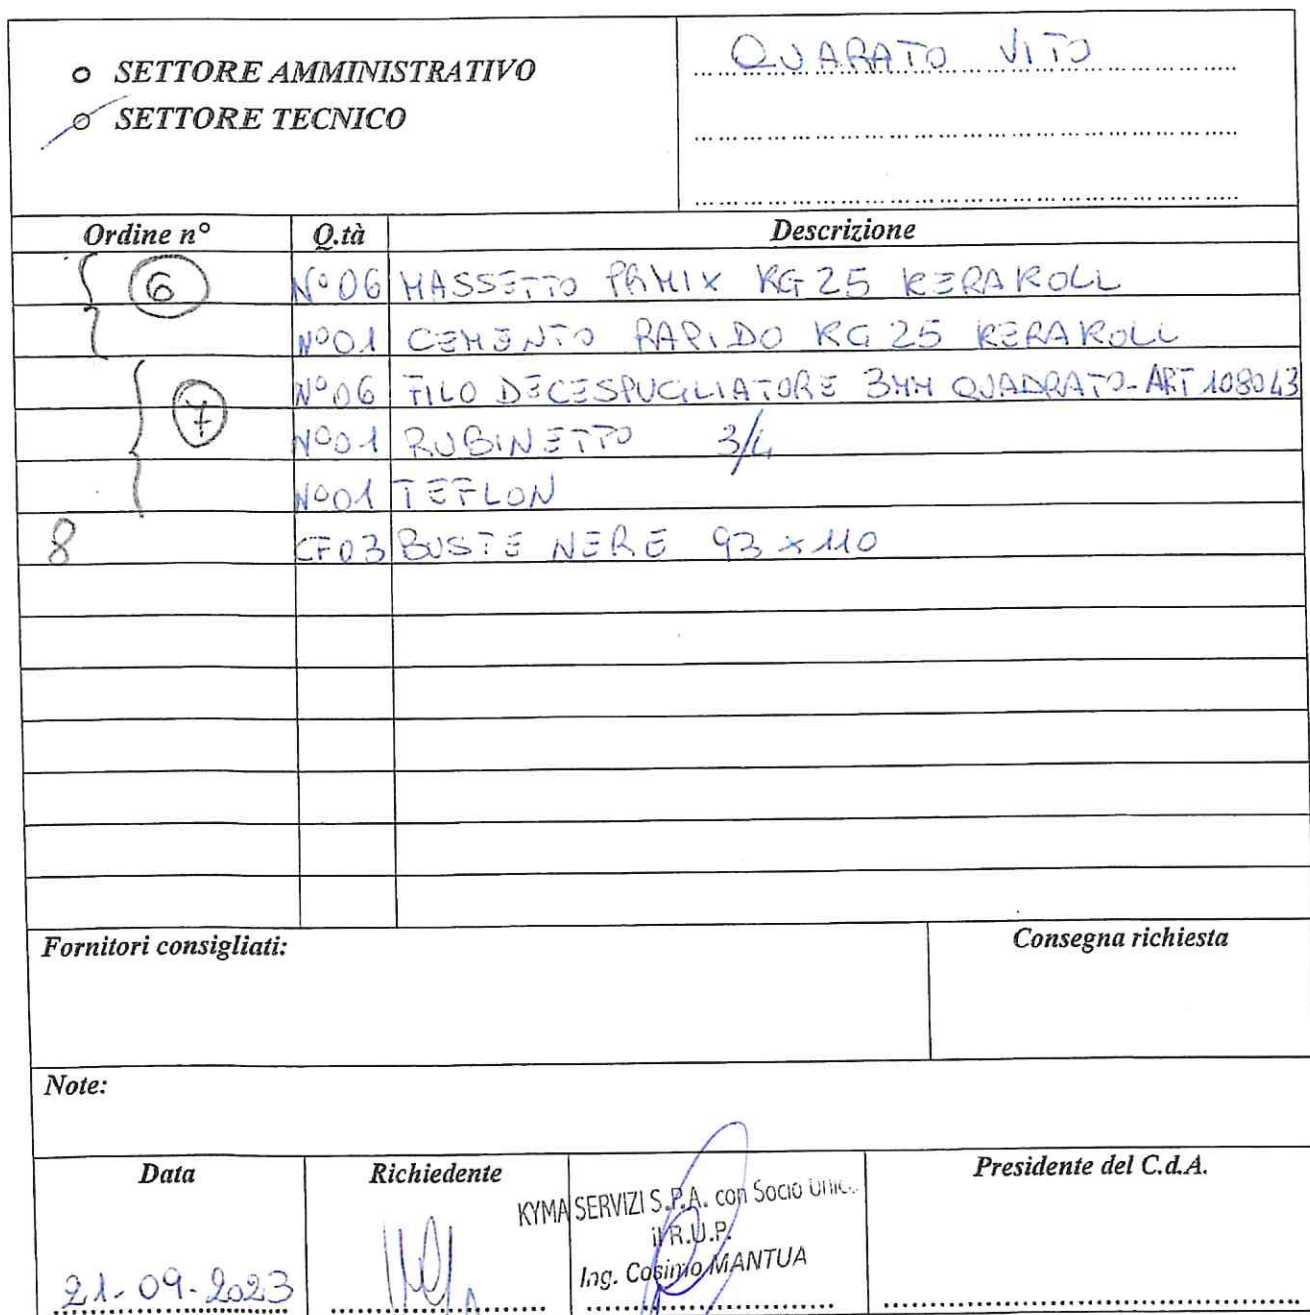 o SETTORE AMMINISTRATIVO
o SETTORE TECNICO
QUARATO VITO
Ordine n° Q.tà Descrizione
6 N°06 MASSETTO PRMIX KG 25 KERAKOLL
N°01 CEMENTO RAPIDO KG 25 KERAKOLL
7 N°06 FILO DECESPUGLIATORE 3MM QUADRATO-ART 108043
N°01 RUBINETTO 3/4
N°01 TEFLON
8 CF03 BUSTE NERE 93 x 110
Fornitori consigliati: Consegna richiesta
Note:
Data Richiedente Presidente del C.d.A.
KYMA SERVIZI S.P.A. con Socio Unico
il R.U.P.
Ing. Cosimo MANTUA
21-09-2023